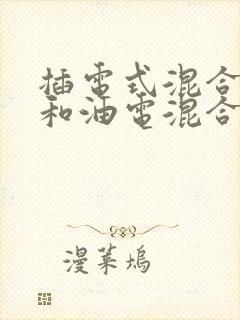 插電式混合
和油電混合
漫葉塢